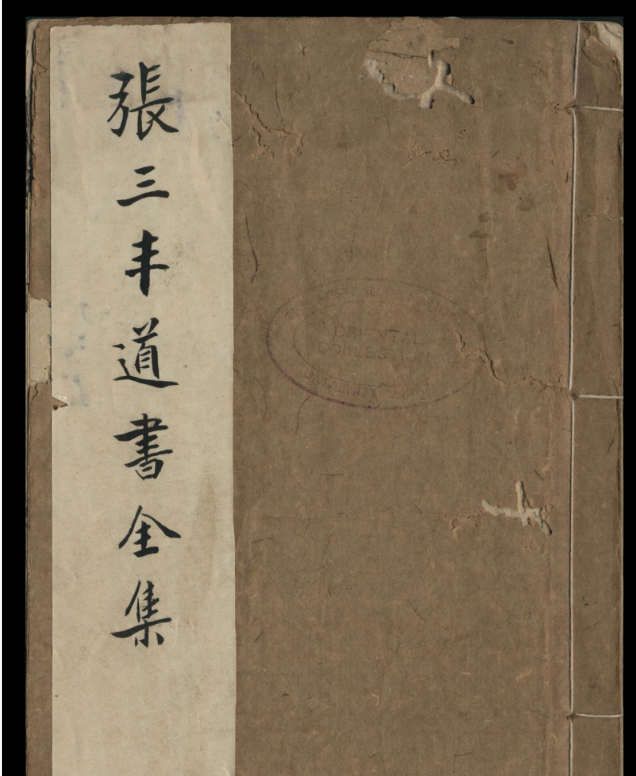 張三丰道書全集
ORIENTAL